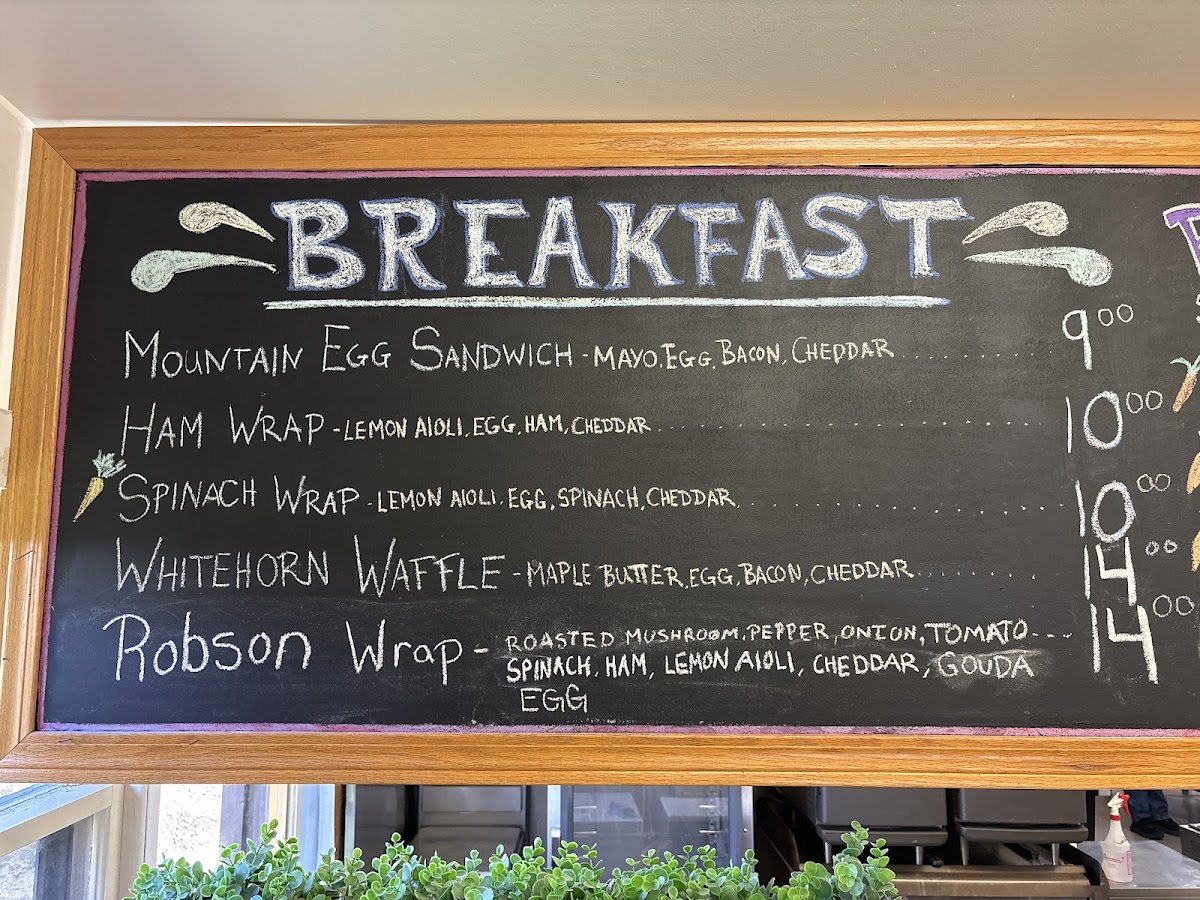 BREAKFAST
MOUNTAIN EGG SANDWICH - MAYO, EGG, BACON, CHEDDAR .......... 9.00
HAM WRAP - LEMON AIOLI, EGG, HAM, CHEDDAR .......... 10.00
SPINACH WRAP - LEMON AIOLI, EGG, SPINACH, CHEDDAR .......... 10.00
WHITEHORN WAFFLE - MAPLE BUTTER, EGG, BACON, CHEDDAR .......... 14.00
Robson Wrap - ROASTED MUSHROOM, PEPPER, ONION, TOMATO --- 14.00
SPINACH, HAM, LEMON AIOLI, CHEDDAR, GOUDA
EGG